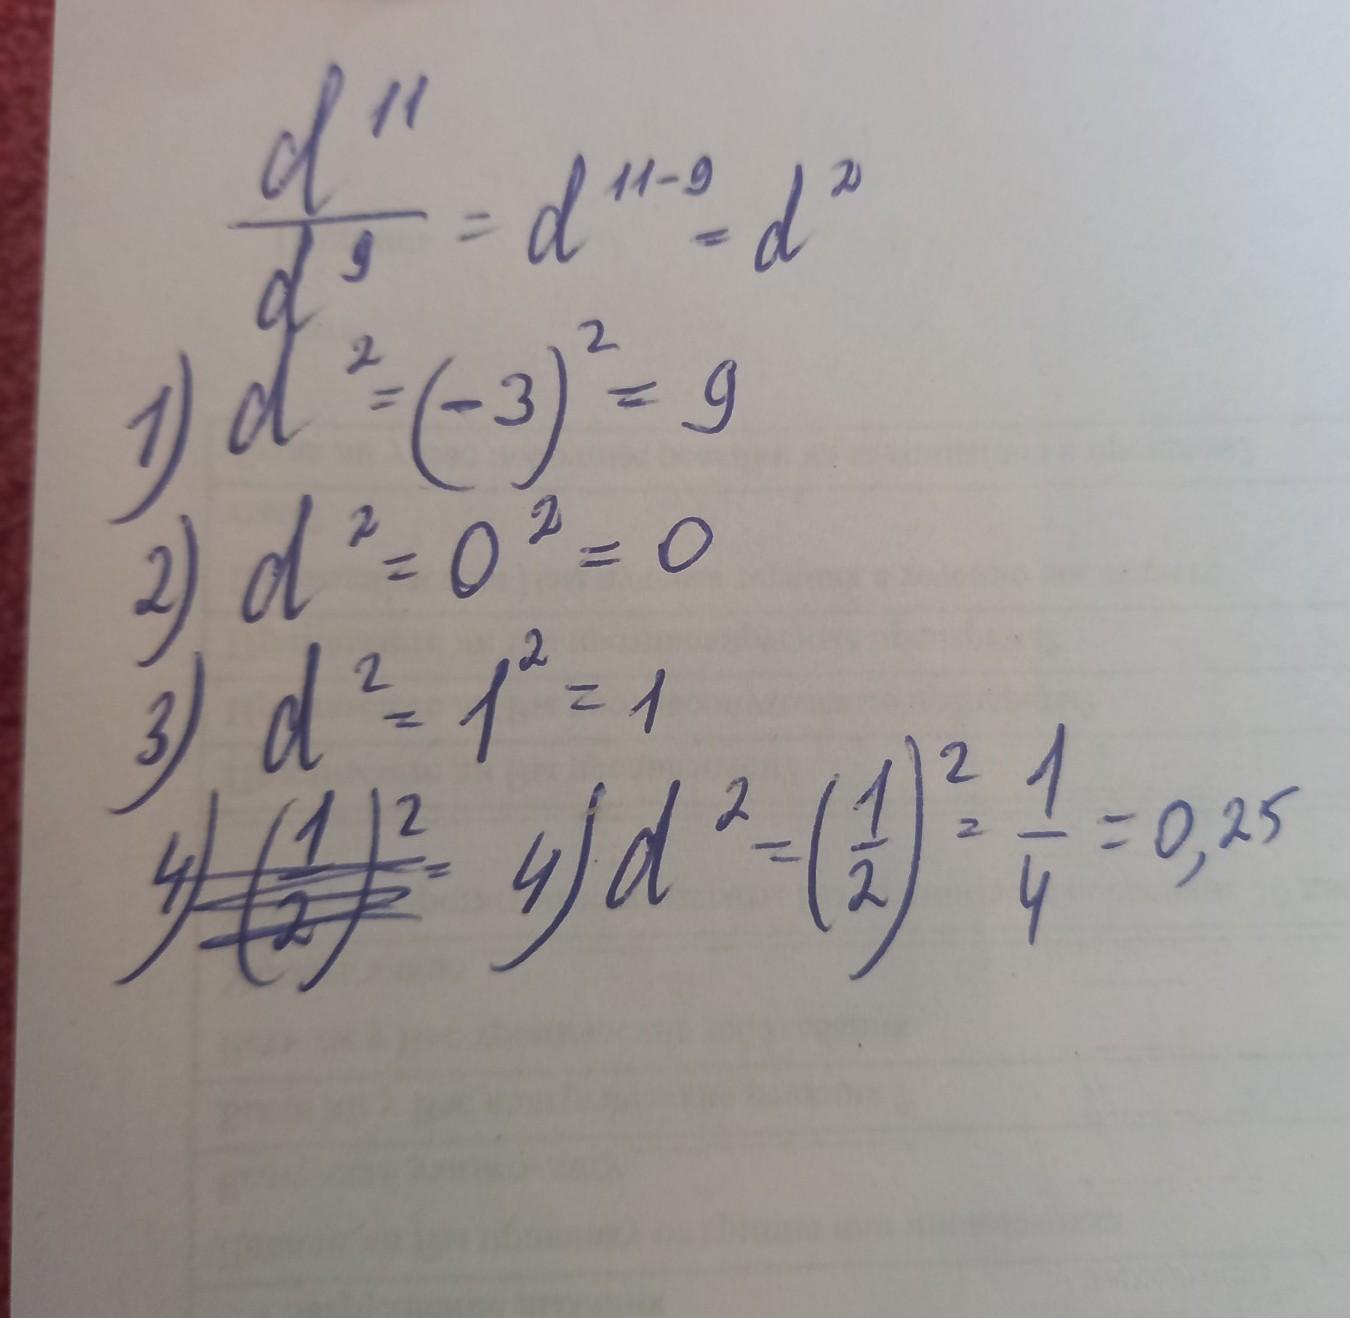 d^11 / d^9 = d^11-9 = d^2
1) d^2 = (-3)^2 = 9
2) d^2 = 0^2 = 0
3) d^2 = 1^2 = 1
4) (1/2)^2 = 4) d^2 = (1/2)^2 = 1/4 = 0,25